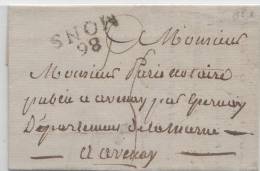 SNOW
98
Monsieur
Monsieur Paris notaire
public a avenay par Epernay
Département de la Marne
a avenay